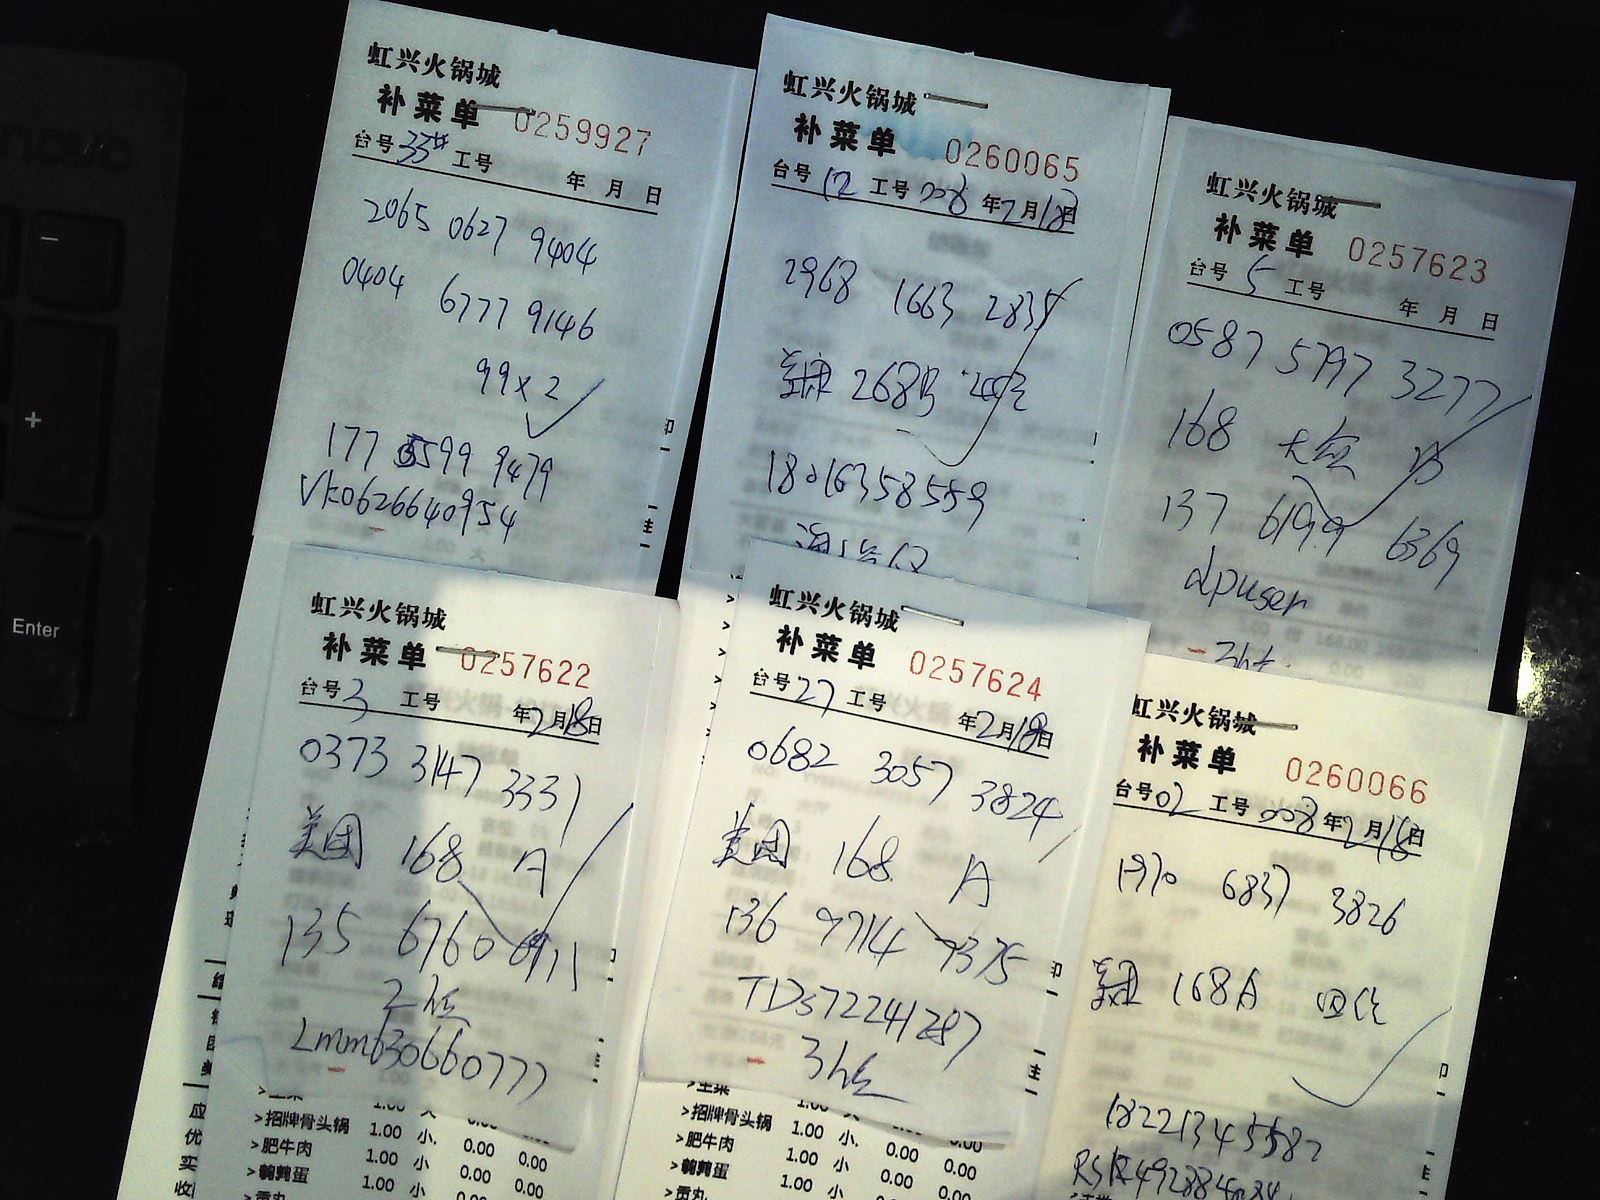 虹兴火锅城
补菜单 0259927
台号 33# 工号 年 月 日
2065 0627 9404
0404 6777 9146
99×2
177 5599 9479
VK0626640954
印
主
虹兴火锅城
补菜单 0260065
台号 12 工号 008 年 2 月 18 日
2968 1663 2835
美团 268B
18016358559
虹兴火锅城
补菜单 0257623
台号 5 工号 年 月 日
0587 5797 3277
168 大众 B
137 6199 6369
dpuser
虹兴火锅城
补菜单 0257622
台号 3 工号 年 2 月 18 日
0373 3147 3331
美团 168 A
135 6760 0911
2位
Lmm630660777
印
主
>招牌骨头锅 1.00 小. 0.00 0.00
>肥牛肉 1.00 小 0.00 0.00
>鹌鹑蛋 1.00 小 0.00 0.00
>贡丸
应
优
实
收
虹兴火锅城
补菜单 0257624
台号 27 工号 年 2 月 18 日
0682 3057 3824
美团 168 A
136 9714 9375
TDS72241287
3位
印
主
>招牌骨头锅 1.00 小. 0.00 0.00
>肥牛肉 1.00 小 0.00 0.00
>鹌鹑蛋 1.00 小 0.00 0.00
>贡丸
虹兴火锅城
补菜单 0260066
台号 02 工号 008 年 2 月 18 日
1970 6837 3826
美团 168A 四位
18221345582
印
主
Enter
+
−